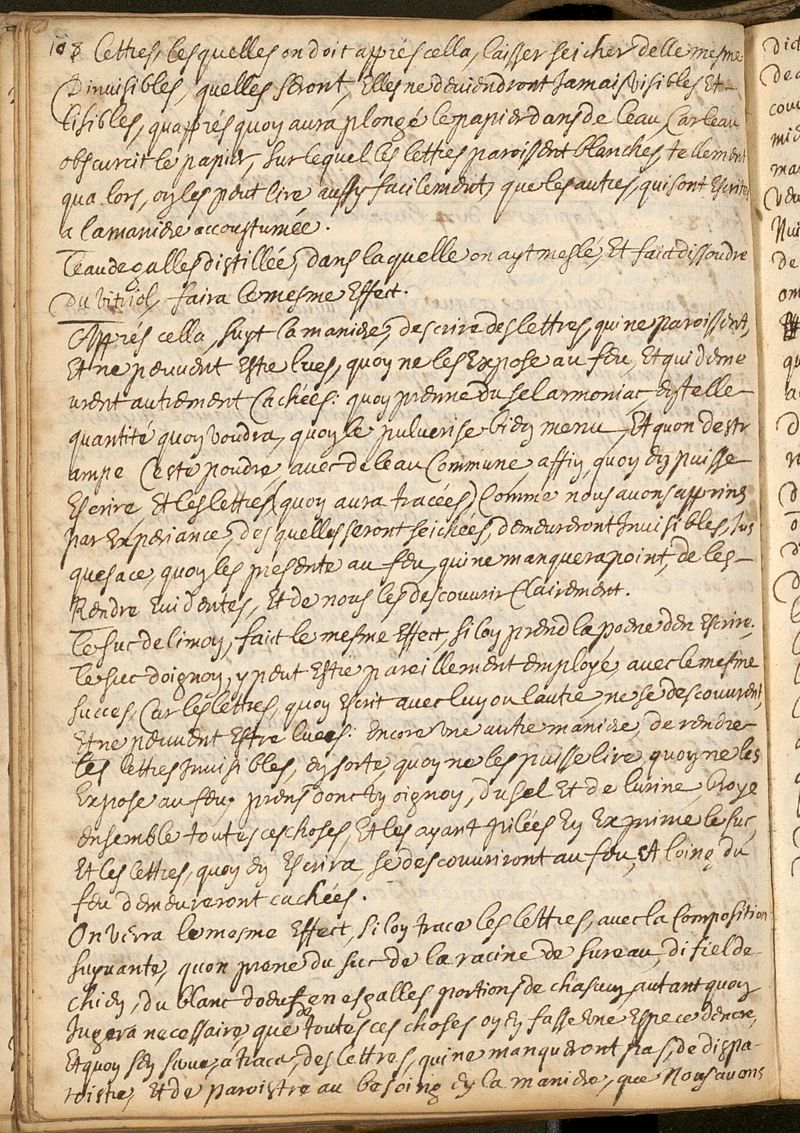 108 lettres, lesquelles on doit apprés cella, laisser seicher delle mesme
Dinuisibles, quelles seront, Elles ne deuiendront Jamais Visibles Et
lisibles, quapprés quoy aura plongé le papier dans de leau, Car leau
obscurcit le papier, sur lequel les lettres paroissent blanches, tellement
qua lors, oy les peut lire aussy facilement, que les autres, qui sont Escrites
a la maniere accoustumée.
Leau de galles distillée, dans laquelle on ayt meslé, Et faict dissoudre
Du Vitriol, faira le mesme Effect.
Apprés cella, suyt la maniere, descrire des lettres, qui ne paroissent,
Et ne peuuent Estre lues, quoy ne les Expose au feu, Et qui deme
urent autrement Cachées: quoy prenne du sel armoniac ey telle
quantité quoy voudra, quoy le puluerise biey menu, Et quon destr
ampe Ceste poudre, auec de leau Commune, affiy quoy ey puisse
Escrire, Et les lettres (quoy aura tracées) Comme nous auons apprins
par Experiance, desquelles seront seichées, demeureront Inuisibles, Jus
ques ace, quoy les presente au feu, qui ne manquera point, de les
Rendre euidentes, Et de nous les descouurir Clairement.
Le suc de limoy, fait le mesme Effect, si loy prend la peene den Escrire.
Le suc doignoy, y peut Estre pareillement employé, auec le mesme
succes, Car les lettres, quoy Escrit auec luy ou lautre, ne se descouurent,
Et ne peuuent Estre luees: encore Vne autre maniere, de rendre
les lettres Inuisibles, ey sorte, quoy ne les puisse lire, quoy ne les
Expose au feu, prens donc Vy oignoy, du sel Et de lurine, broye
ensemble toutes ces choses, Et les ayant pilées Ey Exprime le suc,
Et les lettres, quoy ey Escrira, se descouuriront au feu, Et loing du
feu demeureront cachées.
On verra le mesme Effect, si loy trace les lettres, auec la Composition
suyuante, quon prene du suc de la racine de sureau, di fiel de
chiey, du blanc doeuf, en esgalles portions de chascuy, autant quoy
Jugera necessaire, que de toutes ces choses oy ey fasse Vne Espece dencre,
Et quoy sey serue, a tracer, des lettres, qui ne manqueront pas, de dispa-
roistre, Et de paroistre au besoing ey la maniere, que Nous auons